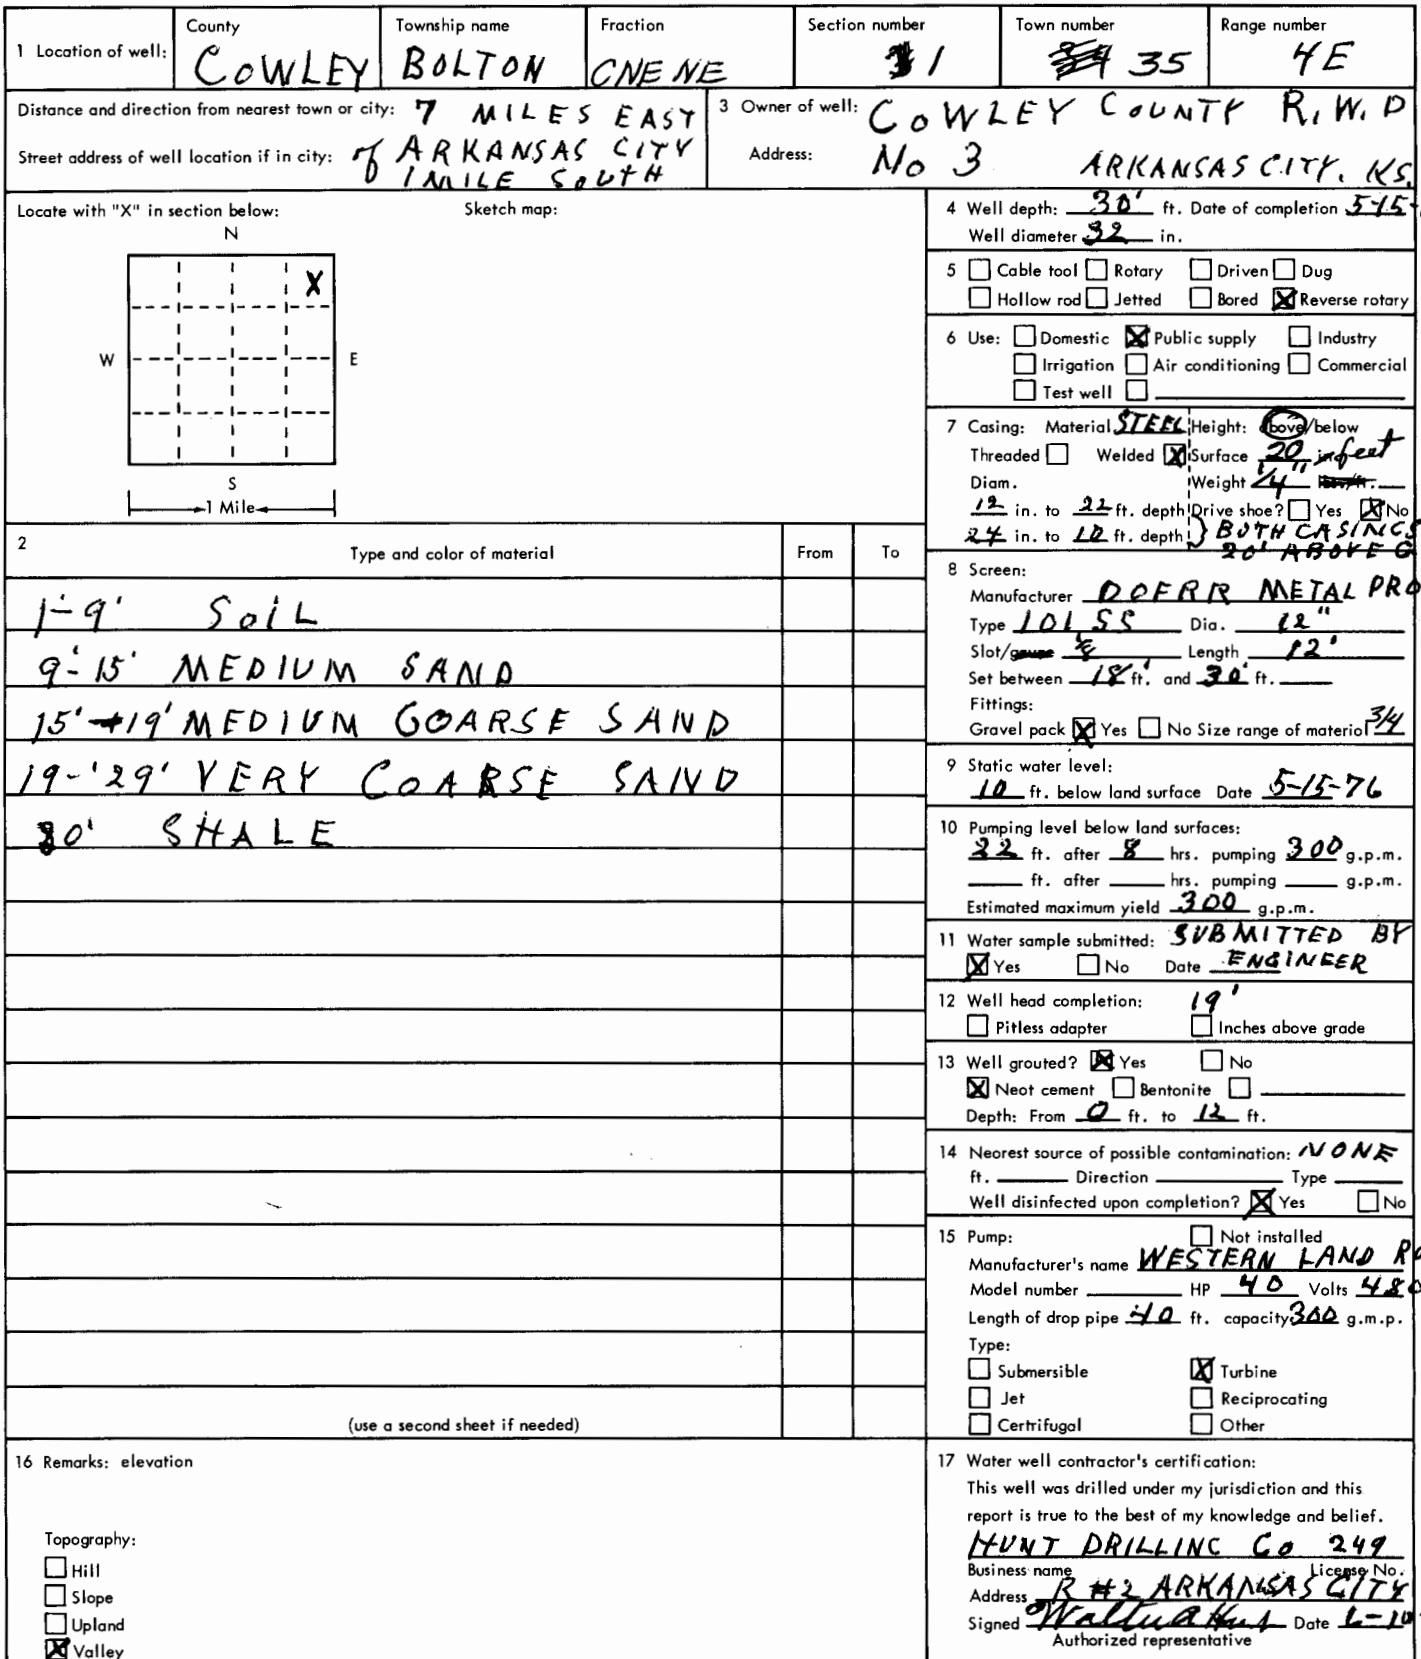 1 Location of well: County Township name Fraction Section number Town number Range number
COWLEY BOLTON CNE NE 1 35 4E
Distance and direction from nearest town or city: 7 MILES EAST
Street address of well location if in city: of ARKANSAS CITY
1 MILE SOUTH
3 Owner of well: COWLEY COUNTY R.W.D
Address: No 3 ARKANSAS CITY, KS.
Locate with "X" in section below: Sketch map:
N
X
W E
S
1 Mile
2 Type and color of material From To
1'-9' SOIL
9'-15' MEDIUM SAND
15'-19' MEDIUM COARSE SAND
19-'29' VERY COARSE SAND
30' SHALE
(use a second sheet if needed)
4 Well depth: 30' ft. Date of completion 5-15-
Well diameter 32 in.
5 Cable tool Rotary Driven Dug
Hollow rod Jetted Bored X Reverse rotary
6 Use: Domestic X Public supply Industry
Irrigation Air conditioning Commercial
Test well
7 Casing: Material STEEL Height: above/below
Threaded Welded X Surface 20 in feet
Diam. Weight 1/4"
12 in. to 22 ft. depth Drive shoe? Yes X No
24 in. to 10 ft. depth } BOTH CASINGS
20' ABOVE G
8 Screen:
Manufacturer DOERR METAL PRO
Type 101 SS Dia. 12"
Slot/gauze 1/8 Length 12'
Set between 18 ft. and 30' ft.
Fittings:
Gravel pack X Yes No Size range of material 3/4
9 Static water level:
10 ft. below land surface Date 5-15-76
10 Pumping level below land surfaces:
22 ft. after 8 hrs. pumping 300 g.p.m.
ft. after hrs. pumping g.p.m.
Estimated maximum yield 300 g.p.m.
11 Water sample submitted: SUBMITTED BY
X Yes No Date ENGINEER
12 Well head completion: 19'
Pitless adapter Inches above grade
13 Well grouted? X Yes No
X Neat cement Bentonite
Depth: From 0 ft. to 12 ft.
14 Nearest source of possible contamination: NONE
ft. Direction Type
Well disinfected upon completion? X Yes No
15 Pump: Not installed
Manufacturer's name WESTERN LAND RO
Model number HP 40 Volts 480
Length of drop pipe 40 ft. capacity 300 g.m.p.
Type:
Submersible X Turbine
Jet Reciprocating
Certrifugal Other
16 Remarks: elevation
Topography:
Hill
Slope
Upland
X Valley
17 Water well contractor's certification:
This well was drilled under my jurisdiction and this
report is true to the best of my knowledge and belief.
HUNT DRILLING Co 249
Business name License No.
Address R #2 ARKANSAS CITY
Signed Walter A Hunt Date 6-10
Authorized representative